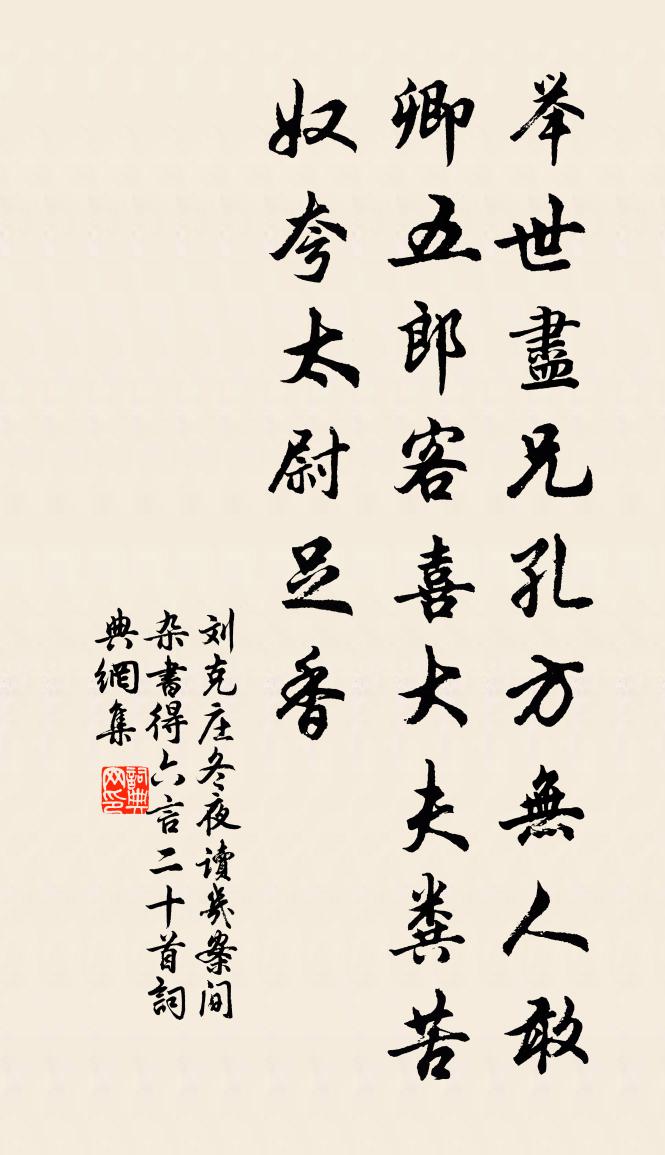 举世盡兄孔方無人敢
卿五郎客喜大夫粪苦
奴夸太尉足香
刘克庄冬夜讀几案间
杂書得六言二十首詞
典網集
詞典
网印